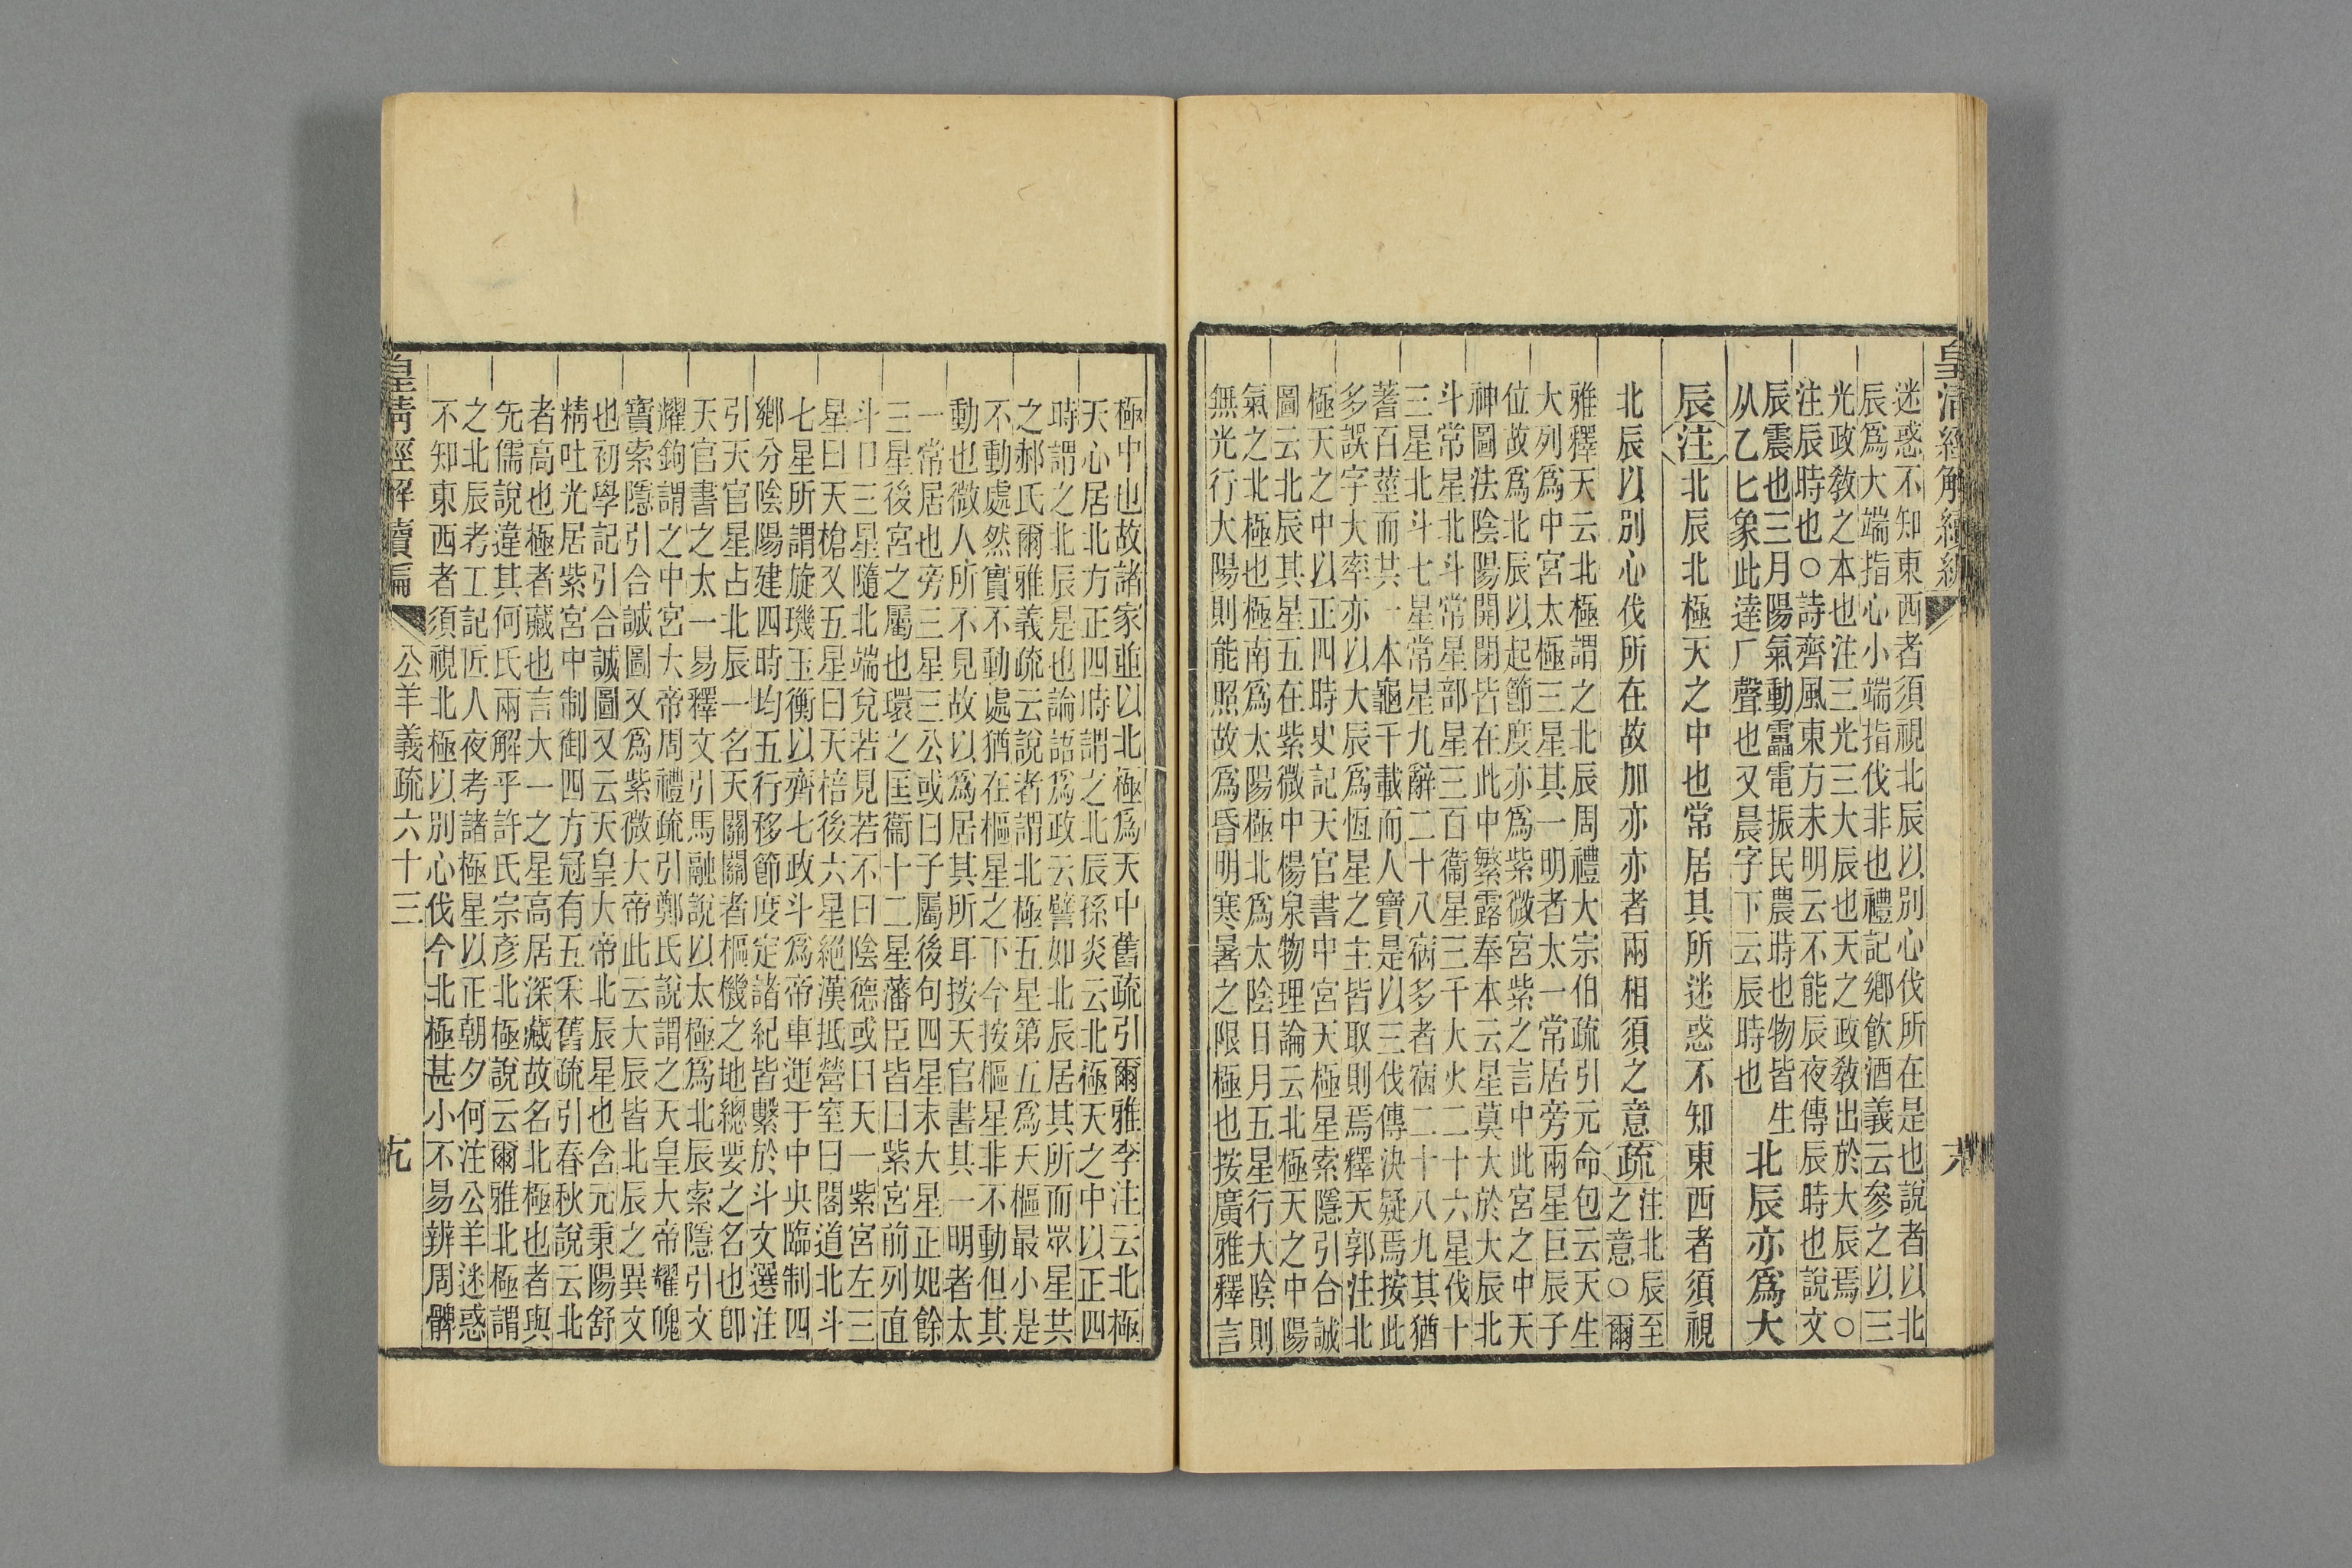 皇清經解續編
迷惑不知東西者須視北辰以別心伐所在是也說者以北
辰爲大端指心小端指伐非也禮記鄉飲酒義云參之以三
光政教之本也注三光三大辰也天之政教出於大辰焉○
注辰時也○詩齊風東方未明云不能辰夜傳辰時也說文
辰震也三月陽氣動靁電振民農時也物皆生
从乙匕象此達厂聲也又晨字下云辰時也
北辰亦爲大
辰注北辰北極天之中也常居其所迷惑不知東西者須視
北辰以別心伐所在故加亦亦者兩相須之意疏
注北辰至
之意○爾
雅釋天云北極謂之北辰周禮大宗伯疏引元命包云天生
大列爲中宮太極三星其一明者太一常居旁兩星巨辰子
位故爲北辰以起節度亦爲紫微宮紫之言中此宮之中天
神圖法陰陽開閉皆在此中繁露奉本云星莫大於大辰北
斗常星北斗常星部星三百衞星三千大火二十六星伐十
三星北斗七星常星九辭二十八宿多者宿二十八九其猶
蓍百莖而其一本龜千載而人寶是以三伐傳決疑焉按此
多誤字大率亦以大辰爲恆星之主皆取則焉釋天郭注北
極天之中以正四時史記天官書中宮天極星索隱引合誠
圖云北辰其星五在紫微中楊泉物理論云北極天之中陽
氣之北極也極南爲太陽極北爲太陰日月五星行大陰則
無光行大陽則能照故爲昏明寒暑之限極也按廣雅釋言
極中也故諸家並以北極爲天中舊疏引爾雅李注云北極
天心居北方正四時謂之北辰孫炎云北極天之中以正四
時謂之北辰是也論語爲政云譬如北辰居其所而眾星共
之郝氏爾雅義疏云說者謂北極五星第五爲天樞最小是
不動處然實不動處猶在樞星之下今按樞星非不動但其
動也微人所不見故以爲居其所耳按天官書其一明者太
一常居也旁三星三公或曰子屬後句四星末大星正妃餘
三星後宮之屬也環之匡衞十二星藩臣皆曰紫宮前列直
斗口三星隨北端兌若見若不曰陰德或曰天一紫宮左三
星曰天槍又五星曰天棓後六星絕漢抵營室曰閣道北斗
七星所謂旋璣玉衡以齊七政斗爲帝車運于中央臨制四
鄉分陰陽建四時均五行移節度定諸紀皆繫於斗文選注
引天官星占北辰一名天關關者樞機之地總要之名也卽
天官書之太一易釋文引馬融說以太極爲北辰索隱引文
耀鉤謂之中宮大帝周禮疏引鄭氏說謂之天皇大帝耀魄
寶索隱引合誠圖又爲紫微大帝此云大辰皆北辰之異文
也初學記引合誠圖又云天皇大帝北辰星也含元秉陽舒
精吐光居紫宮中制御四方冠有五采舊疏引春秋說云北
者高也極者藏也言大一之星高居深藏故名北極也者與
先儒說違其何氏兩解乎許氏宗彥北極說云爾雅北極謂
之北辰考工記匠人夜考諸極星以正朝夕何注公羊迷惑
不知東西者須視北極以別心伐今北極甚小不易辨周髀
皇清經解續編
公羊義疏六十三